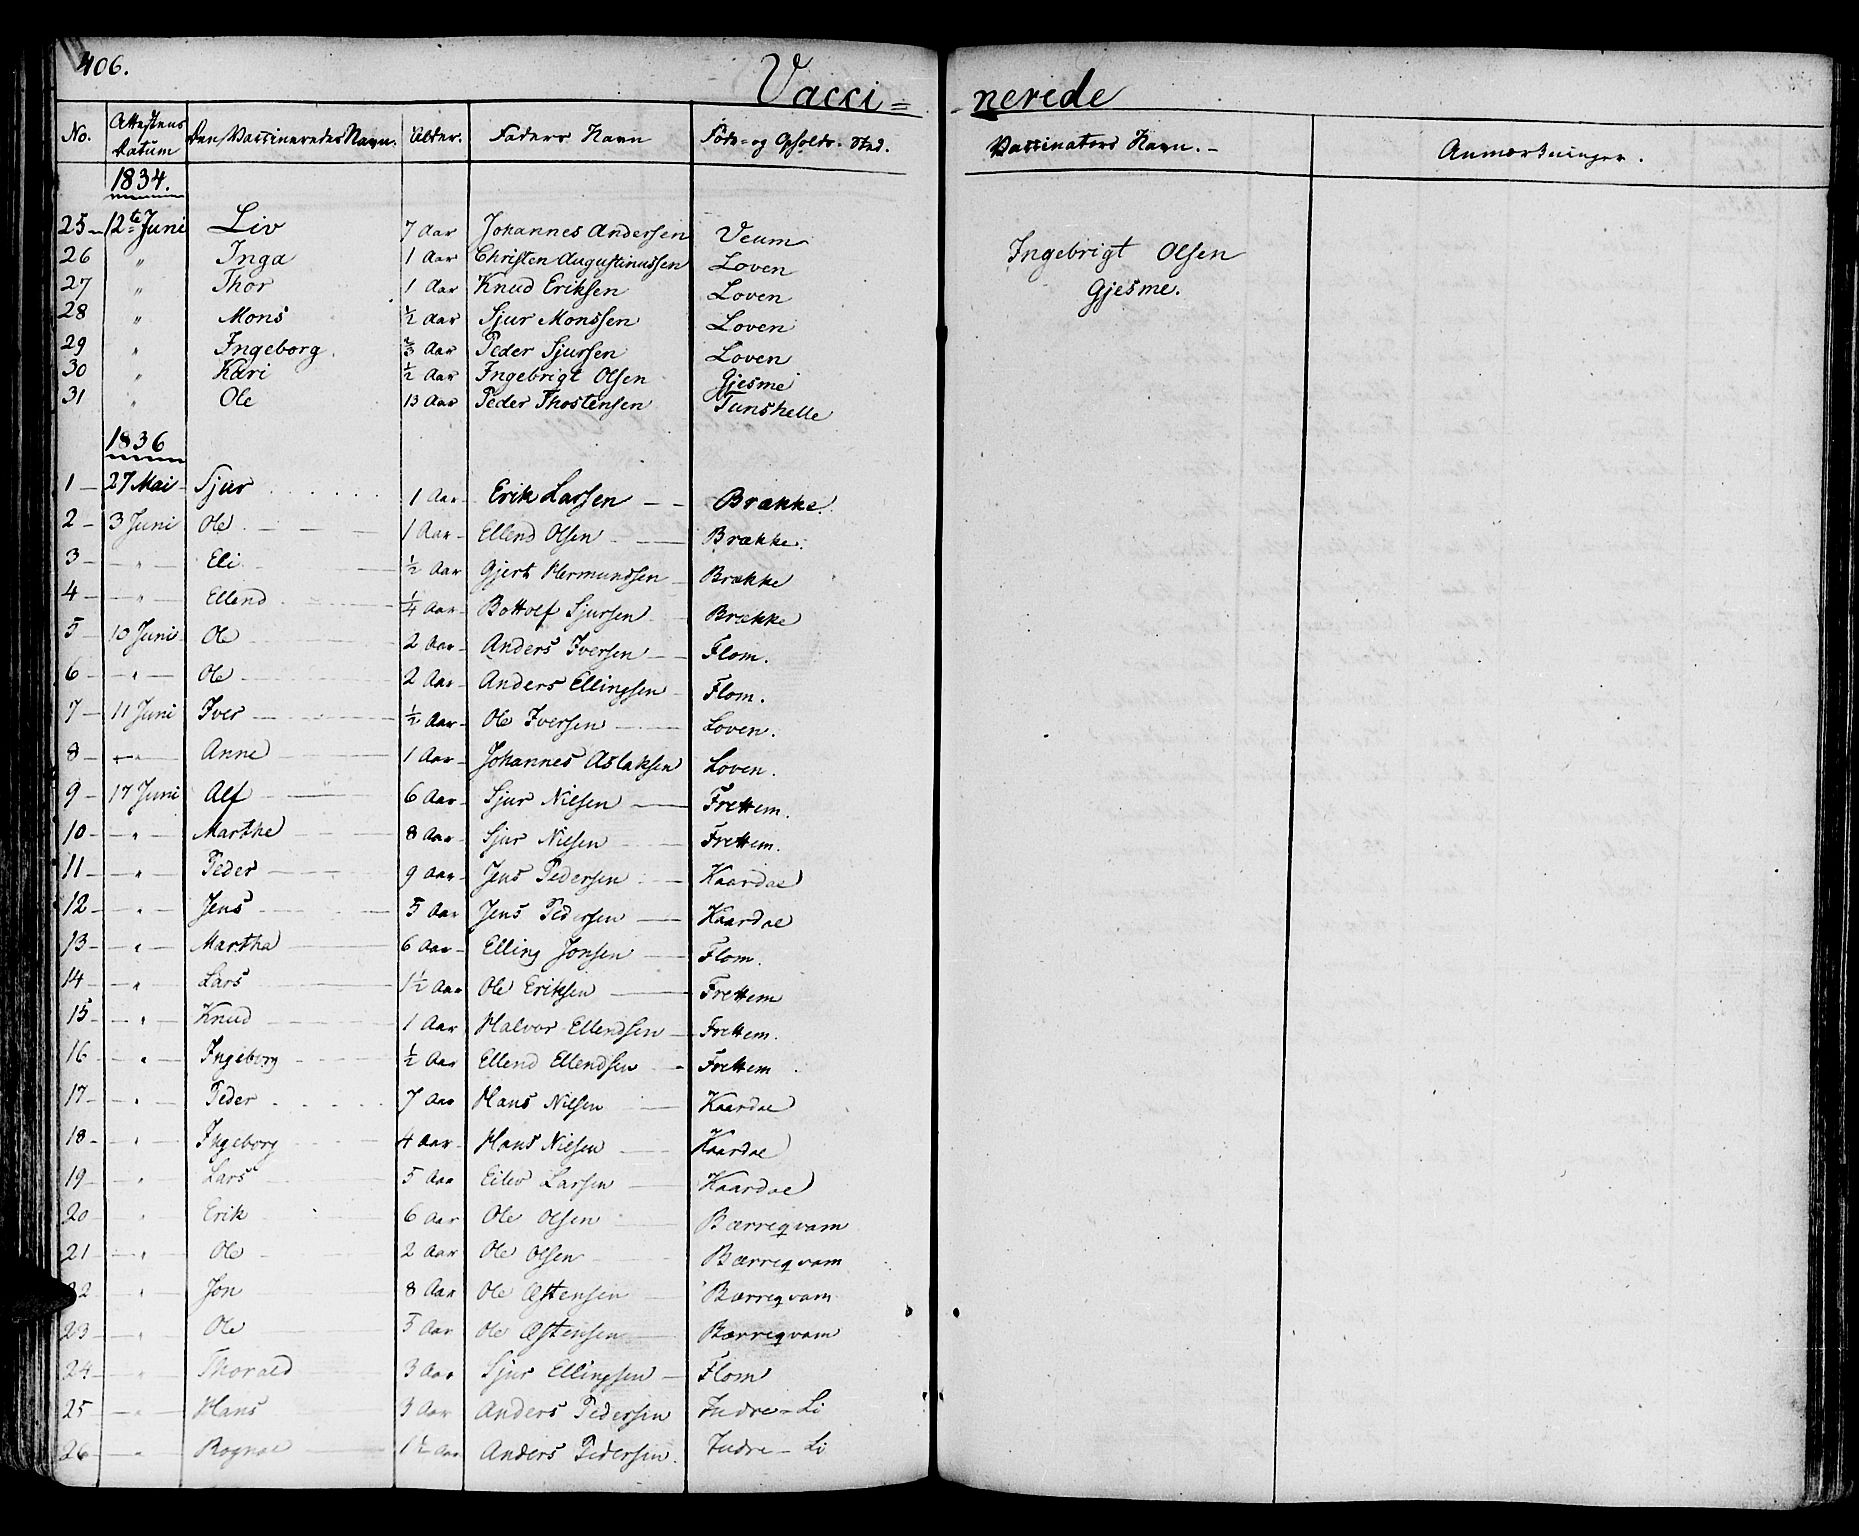 406.
Vacci= nerede
No. Attestens Datum Den Vaccineredes Navn. Alder. Faders Navn Føde- og Opholds-Sted. Vaccinators Navn.- Anmærkninger.
1834.
25 12te Juni Liv 7 Aar Johannes Andersen Veum Ingebrigt Olsen
26 " Inga 1 Aar Christen Augustinussen Loven Gjesme.
27 " Thor 1 Aar Knud Eriksen Loven
28 " Mons ½ Aar Sjur Monssen Loven
29 " Ingeborg ⅔ Aar Peder Sjursen Loven
30 " Kari ½ Aar Ingebrigt Olsen Gjesme
31 " Ole 13 Aar Peder Thostensen Tunshelle
1836
1 27 Mai Sjur 1 Aar Erik Larsen Brække.
2 3 Juni Ole 1 Aar Ellend Olsen Brække.
3 " Eli ½ Aar Gjert Hermundsen Brække
4 " Ellend ¼ Aar Bottolf Sjursen Brække
5 10 Juni Ole 2 Aar Anders Iversen Flom.
6 " Ole 2 Aar Anders Ellingsen Flom.
7 11 Juni Iver ½ Aar Ole Iversen Loven.
8 " Anne 1 Aar Johannes Aslaksen Loven.
9 17 Juni Alf 6 Aar Sjur Nilsen Frettem.
10 " Marthe 8 Aar Sjur Nilsen Frettem.
11 " Peder 9 Aar Jens Pedersen Kaardal
12 " Jens 5 Aar Jens Pedersen Kaardal
13 " Martha 6 Aar Elling Jonsen Flom.
14 " Lars 1½ Aar Ole Eriksen Frettem
15 " Knud 1 Aar Halvor Ellendsen Frettem.
16 " Ingeborg ½ Aar Ellend Ellendsen Frettem
17 " Peder 7 Aar Hans Nilsen Kaardal
18 " Ingeborg 4 Aar Hans Nilsen Kaardal
19 " Lars 5 Aar Eilev Larsen Kaardal
20 " Erik 6 Aar Ole Olsen Bærreqvam
21 " Ole 2 Aar Ole Olsen Bærreqvam
22 " Jon 8 Aar Ole Østensen Bærreqvam
23 " Ole 5 Aar Ole Østensen Bærreqvam
24 " Thorald 3 Aar Sjur Ellingsen Flom
25 " Hans 3 Aar Anders Pedersen Indre-Li
26 " Rognal 1½ Aar Anders Pedersen. Indre-Li